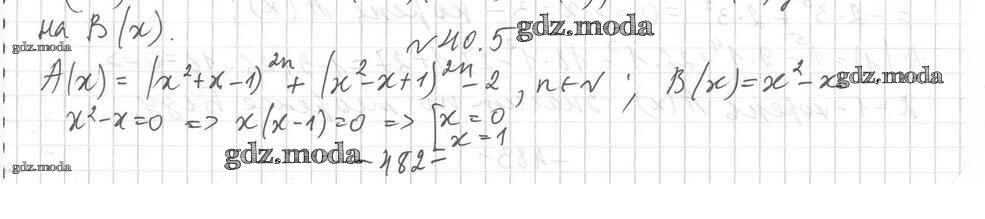 на B(x).
gdz.moda
№40.5
gdz.moda
A(x) = (x²+x-1)²ⁿ + (x²-x+1)²ⁿ - 2, n∈N; B(x)=x²-x
gdz.moda
x²-x=0 => x(x-1)=0 => [x=0
x=1
gdz.moda
gdz.moda
- 482 =